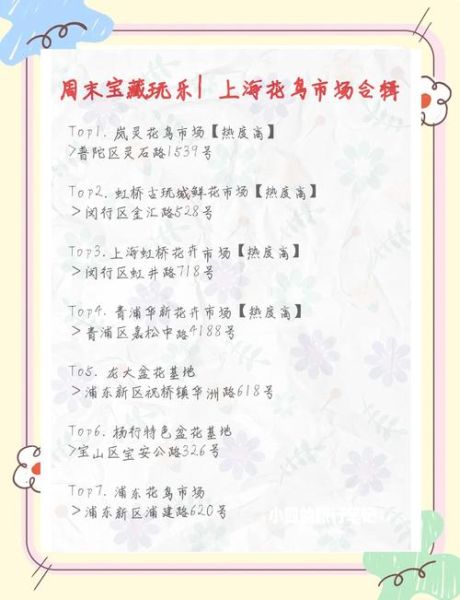 周末宝藏玩乐| 上海花鸟市场合辑
Top1. 岚灵花鸟市场【热度高】
>普陀区灵石路1539号
Top2. 虹桥古玩城鲜花市场【热度高】
>闵行区金汇路528号
Top3.上海虹桥花卉市场【热度高】
>闵行区虹井路718号
Top4. 青浦华新花卉市场【热度高】
>青浦区嘉松中路4188号
To5. 龙大盆花基地
>浦东新区祝桥镇华洲路618号
Top6. 杨行特色盆花基地
>宝山区宝安公路326号
Top7. 浦东花鸟市场
>浦东新区浦建路620号